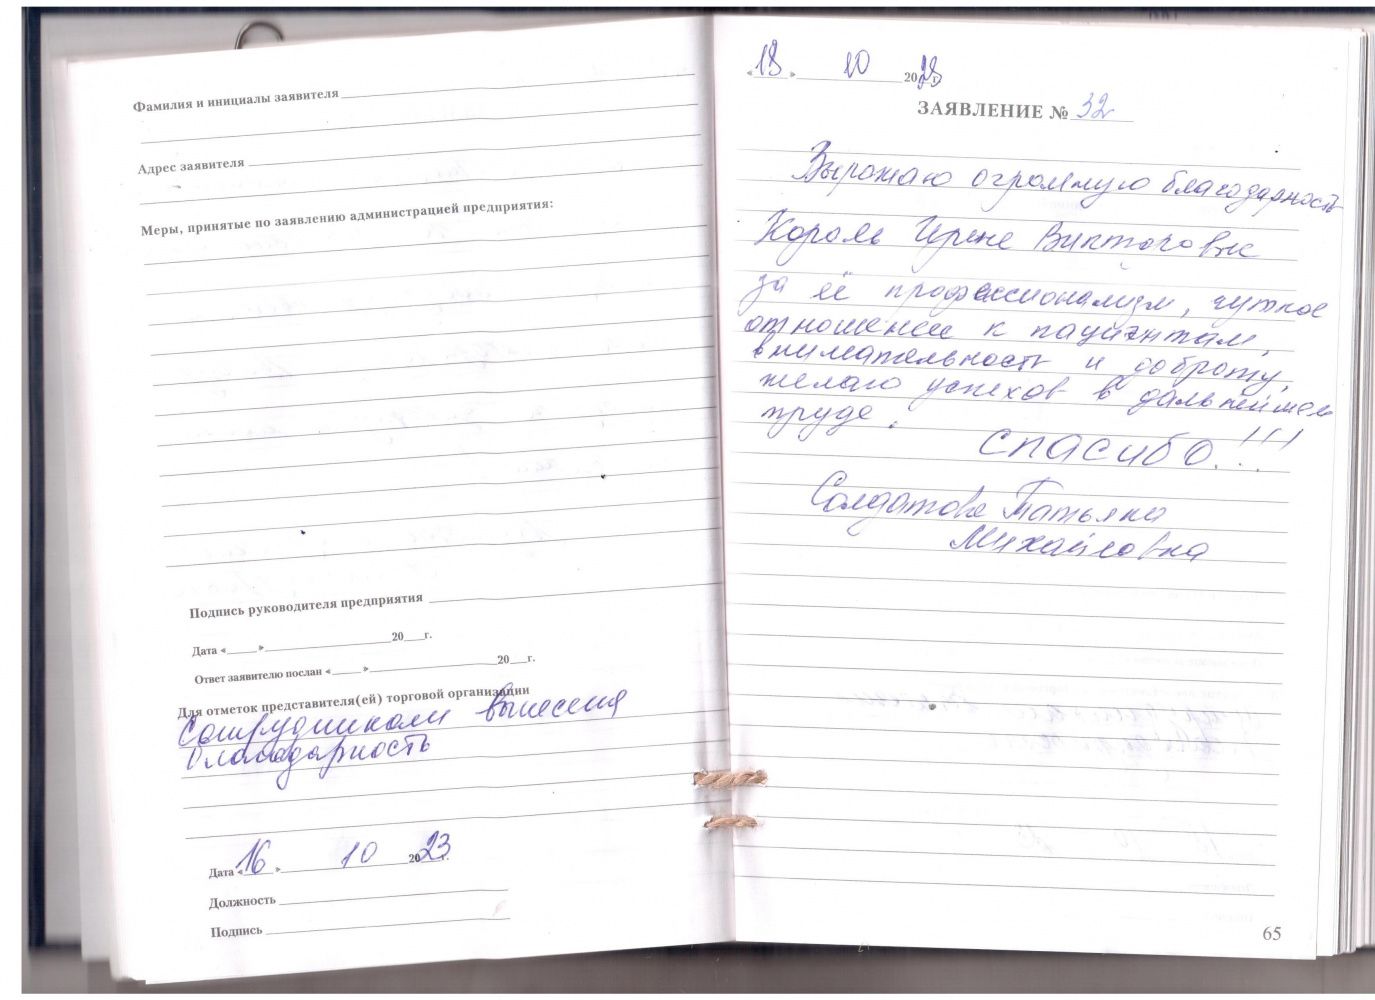 Фамилия и инициалы заявителя
Адрес заявителя
Меры, принятые по заявлению администрацией предприятия:
Подпись руководителя предприятия
Дата « » 20 г.
Ответ заявителю послан « » 20 г.
Для отметок представителя(ей) торговой организации
Сотрудникам вынесена
благодарность
Дата « 16 » 10 2023 г.
Должность
Подпись
« 18 » 10 2023 г.
ЗАЯВЛЕНИЕ № 32
Выражаю огромную благодарность
Король Ирине Викторовне
за её профессионализм, чуткое
отношение к пациентам,
внимательность и доброту,
желаю успехов в дальнейшем
труде.
СПАСИБО!!!
Солдатова Татьяна
Михайловна
65